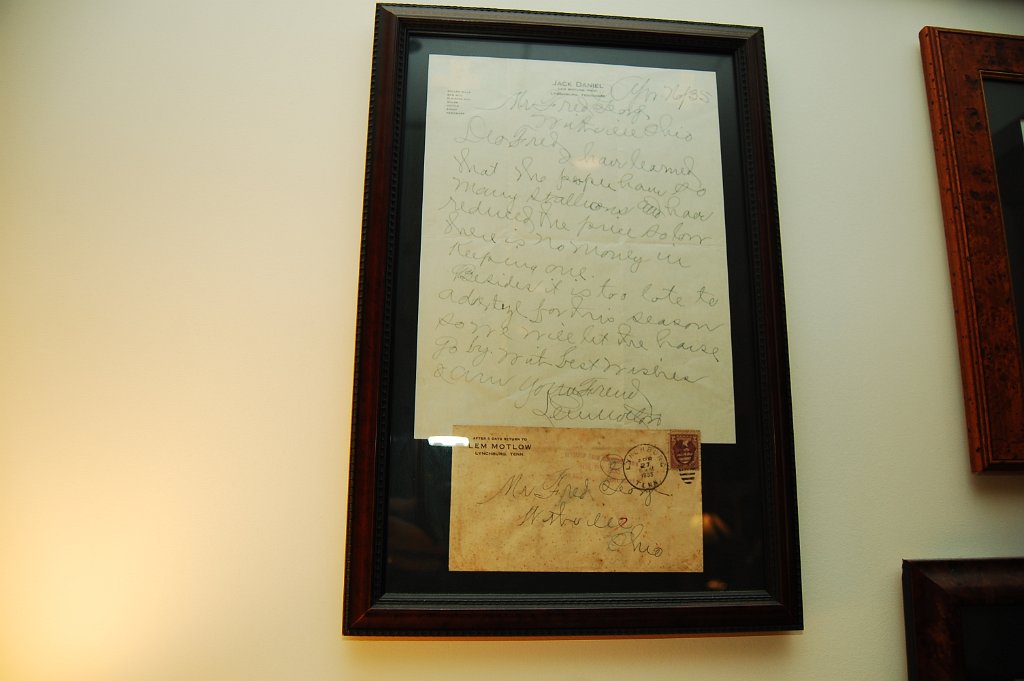 JACK DANIEL
LEM MOTLOW, PROP.
LYNCHBURG, TENNESSEE
Apr 26/35
Mr. Fred
Ohio
Dear Fred
I have learned
that the people have so
many stallions and have
reduced the price so low
there is no money in
Keeping one.
Besides it is too late to
advertise for this season
so we will let the horse
go by. With best wishes
I am Your Friend
Lem Motlow
AFTER 5 DAYS RETURN TO
LEM MOTLOW
LYNCHBURG, TENN.
LYNCHBURG
APR
27
1935
TENN.
Mr. Fred
Ohio